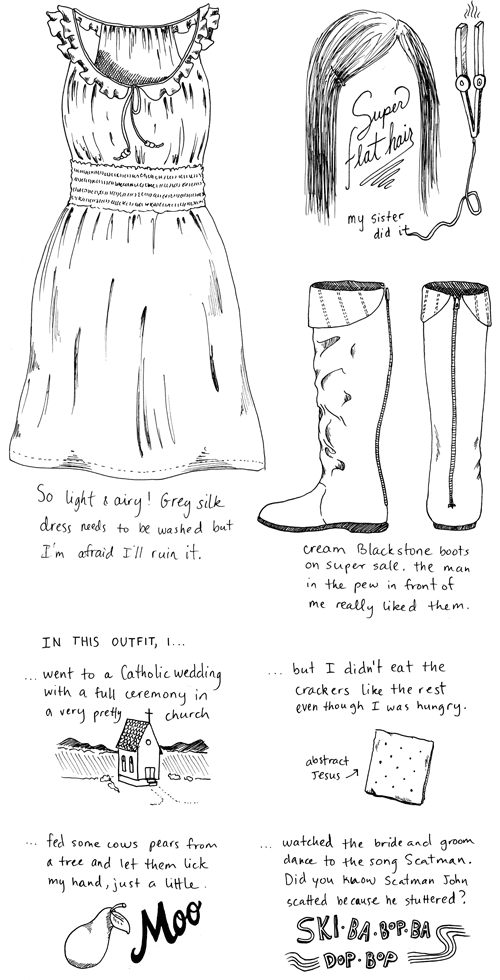 Super
flat hair
my sister
did it
So light & airy! Grey silk
dress needs to be washed but
I'm afraid I'll ruin it.
cream Blackstone boots
on super sale. the man
in the pew in front of
me really liked them.
IN THIS OUTFIT, I...
... went to a Catholic wedding
with a full ceremony in
a very pretty church
... but I didn't eat the
crackers like the rest
even though I was hungry.
abstract
Jesus
... fed some cows pears from
a tree and let them lick
my hand, just a little.
Moo
... watched the bride and groom
dance to the song Scatman.
Did you know Scatman John
scatted because he stuttered?
SKI·BA·BOP·BA
DOP·BOP